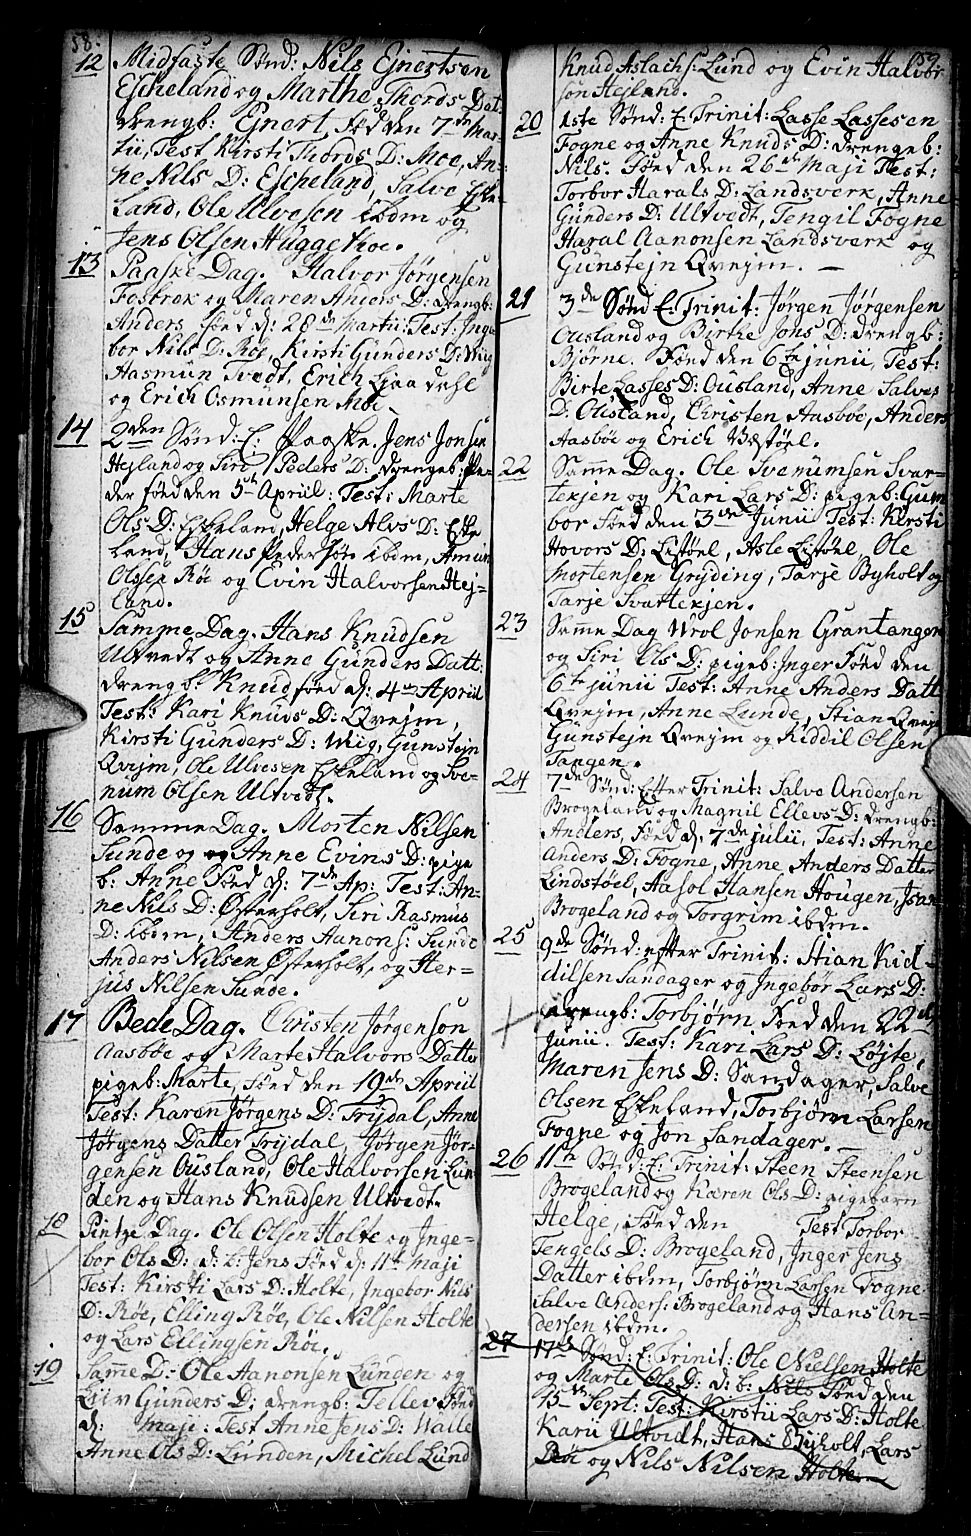 58.
12 Midfaste Sønd: Nils Ejnertsen
Escheland og Marthe Thords Dat:
drengb: Ejnert, Fød den 7de Mar-
tii, Test Kirsti Thords D: Moe, An-
ne Nils D: Escheland, Salve Eske-
land, Ole Ulvesen ibdm og
Jens Olsen Huggekoe.
13 Paaske Dag. Halvor Jørgensen
Fosbrek og Maren Anders D: drengb:
Anders Fød d: 28de Martii: Test: Inge
bor Nils D: Røe, Kirsti Gunders D: Wiig
Hasmun Tvedt, Erich Liaadahl
og Erich Osmunsen Moe.
14 2den Sønd: E: Paaske. Jens Jonsen
Hejland og Siro Peders D: drengeb: Pe-
der føed den 5th Apriil: Test: Marte
Ols D: Eskeland, Helge Alvs D: Eske
land, Hans Pedersøn ibdm, Amun
Olssen Røe og Evin Halvorsen Hej-
land.
15 Samme Dag. Hans Knudsen
Ultvedt og Anne Gunders Datt:
drengb: Knud føed d: 4de Apriil
Test: Kari Knuds D: Qvejm,
Kirsti Gunders D: Wiig, Gunstejn
Qvejm, Ole Ulvesen Eskeland og Sve-
num Olsen Ultvedt.
16 Samme Dag. Morten Nilsen
Sunde og og Anne Evins D: pige
b: Anne Føed d: 7de Ap: Test: An-
ne Nils D: Østerholt, Siri Rasmus
D: ibdm, Anders Aanons: Sunde
Anders Nilsen Østerholt, og Her-
jus Nilsen Sunde.
17 Bede Dag. Christen Jørgenson
Aasbøe og Marte Halvors Datter
pigeb: Marte, Føed den 19de Apriil
Test: Karen Jørgens D: Trydal, Anne
Jørgens Datter Trydal, Jørgen Jør-
gensen Ousland, Ole Halvorsen Lun-
den og Hans Knudsen Ultvedt.
18 Pintze Dag. Ole Olsen Holte og Inge-
bor Ols D: d: b: Jens Fød d: 11te Maji
Test: Kirsti Lars D: Holte, Ingebor Nils
D: Røe, Elling Røe, Ole Nilsen Holte
og Lars Ellingsen Røe.
19 Samme D: Ole Aanonsen Lunden og
Liiv Gunders D: drengb: Tellev Fød
d: Maji: Test Anne Jens D: Walle
Anne Ols D: Lunden, Michel Lund
59
Knud Aslachs: Lund og Evin Halvor
son Hejland.
20 1ste Sønd: E: Trinit: Lasse Lassesen
Fogne og Anne Knuds D: drengeb:
Nils. Fød den 26de Maji Test:
Torbor Harals D: Landsverk, Anne
Gunders D: Ultvedt, Tengil Fogne
Haral Aanonsen Landsverk og
Gunstejn Qvejm. —
21 3de Sønd E: Trinit: Jørgen Jørgensen
Ousland og Birthe Jons D: drengb:
Bjørne. Føed den 6te junii, Test:
Birte Lasses D: Ousland, Anne Salves
D: Ousland, Christen Aasbøe, Anders
Aasbøe og Erich Westøel.
22 Samme Dag. Ole Svenumsen Svar-
tekjen og Kari Lars D: pigeb: Gum
bor Føed den 3de Junii Test: Kirsti
Hovors D: Listøel, Asle Listøel, Ole
Mortensen Gryding, Tarje Byholt og
Tarje Svartekjen.
23 Samme Dag Wrol Jonsen Grantangen
og Siri Ols D: pigeb: Inger Føed den
6te junii Test: Anne Anders Datt
Qvejm, Anne Lunde, Stian Qvejm
Gunstejn Qvejm og Kiddil Olsen
Tangen.
24 7de Sønd: Efter Trinit: Salve Andersen
Brogeland og Magnil Ellevs D: drengb:
Anders, Føed d: 7de julii, Test: Anne
Anders D: Fogne, Anne Anders Datter
Lindstøel, Aasol Hansen Hougen, Jsax
Brogeland og Torgrim ibdm.
25 9de Sønd: efter Trinit: Stian Kid-
dilsen Sandager og Ingebor Lars D:
drengb: Torbjørn, Føed den 22de
Junii. Test: Kari Lars D: Løjte,
Maren Jens D: Sandager, Salve
Olsen Eskeland, Torbjørn Larsen
Fogne og Jon Sandager.
26 11te Sønd: E: Trinit: Steen Steensen
Brogeland og Karen Ols D: pigebarn
Helge, Føed den Test Torbor
Tengels D: Brogeland, Inger Jens
Datter ibdm, Torbjørn Larsen Fogne
Salve Anders: Brogeland og Hans An-
dersen ibdm.
27 17de Sønd: E: Trinit: Ole Nielsen Holte
og Marte Ols D: d: b: Nils Føed den
15de Sept: Test: Kirstii Lars D: Holte
Karii Ultvedt, Hans Byholt, Lars
Røe og Nils Nilsen Holte